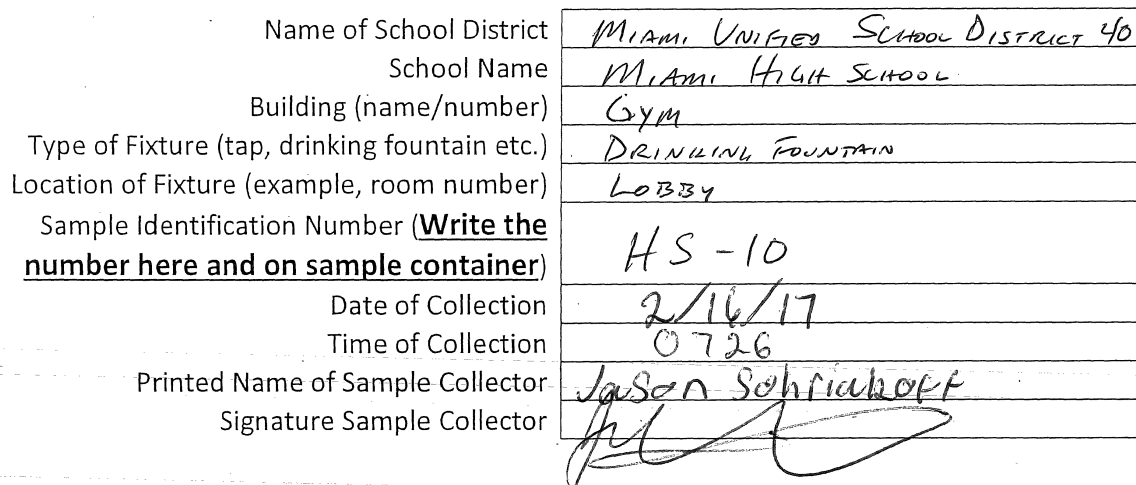 Name of School District MIAMI UNIFIED SCHOOL DISTRICT 40
School Name MIAMI HIGH SCHOOL
Building (name/number) GYM
Type of Fixture (tap, drinking fountain etc.) DRINKING FOUNTAIN
Location of Fixture (example, room number) LOBBY
Sample Identification Number (Write the
number here and on sample container) HS-10
Date of Collection 2/16/17
Time of Collection 0726
Printed Name of Sample Collector Jason
Signature Sample Collector